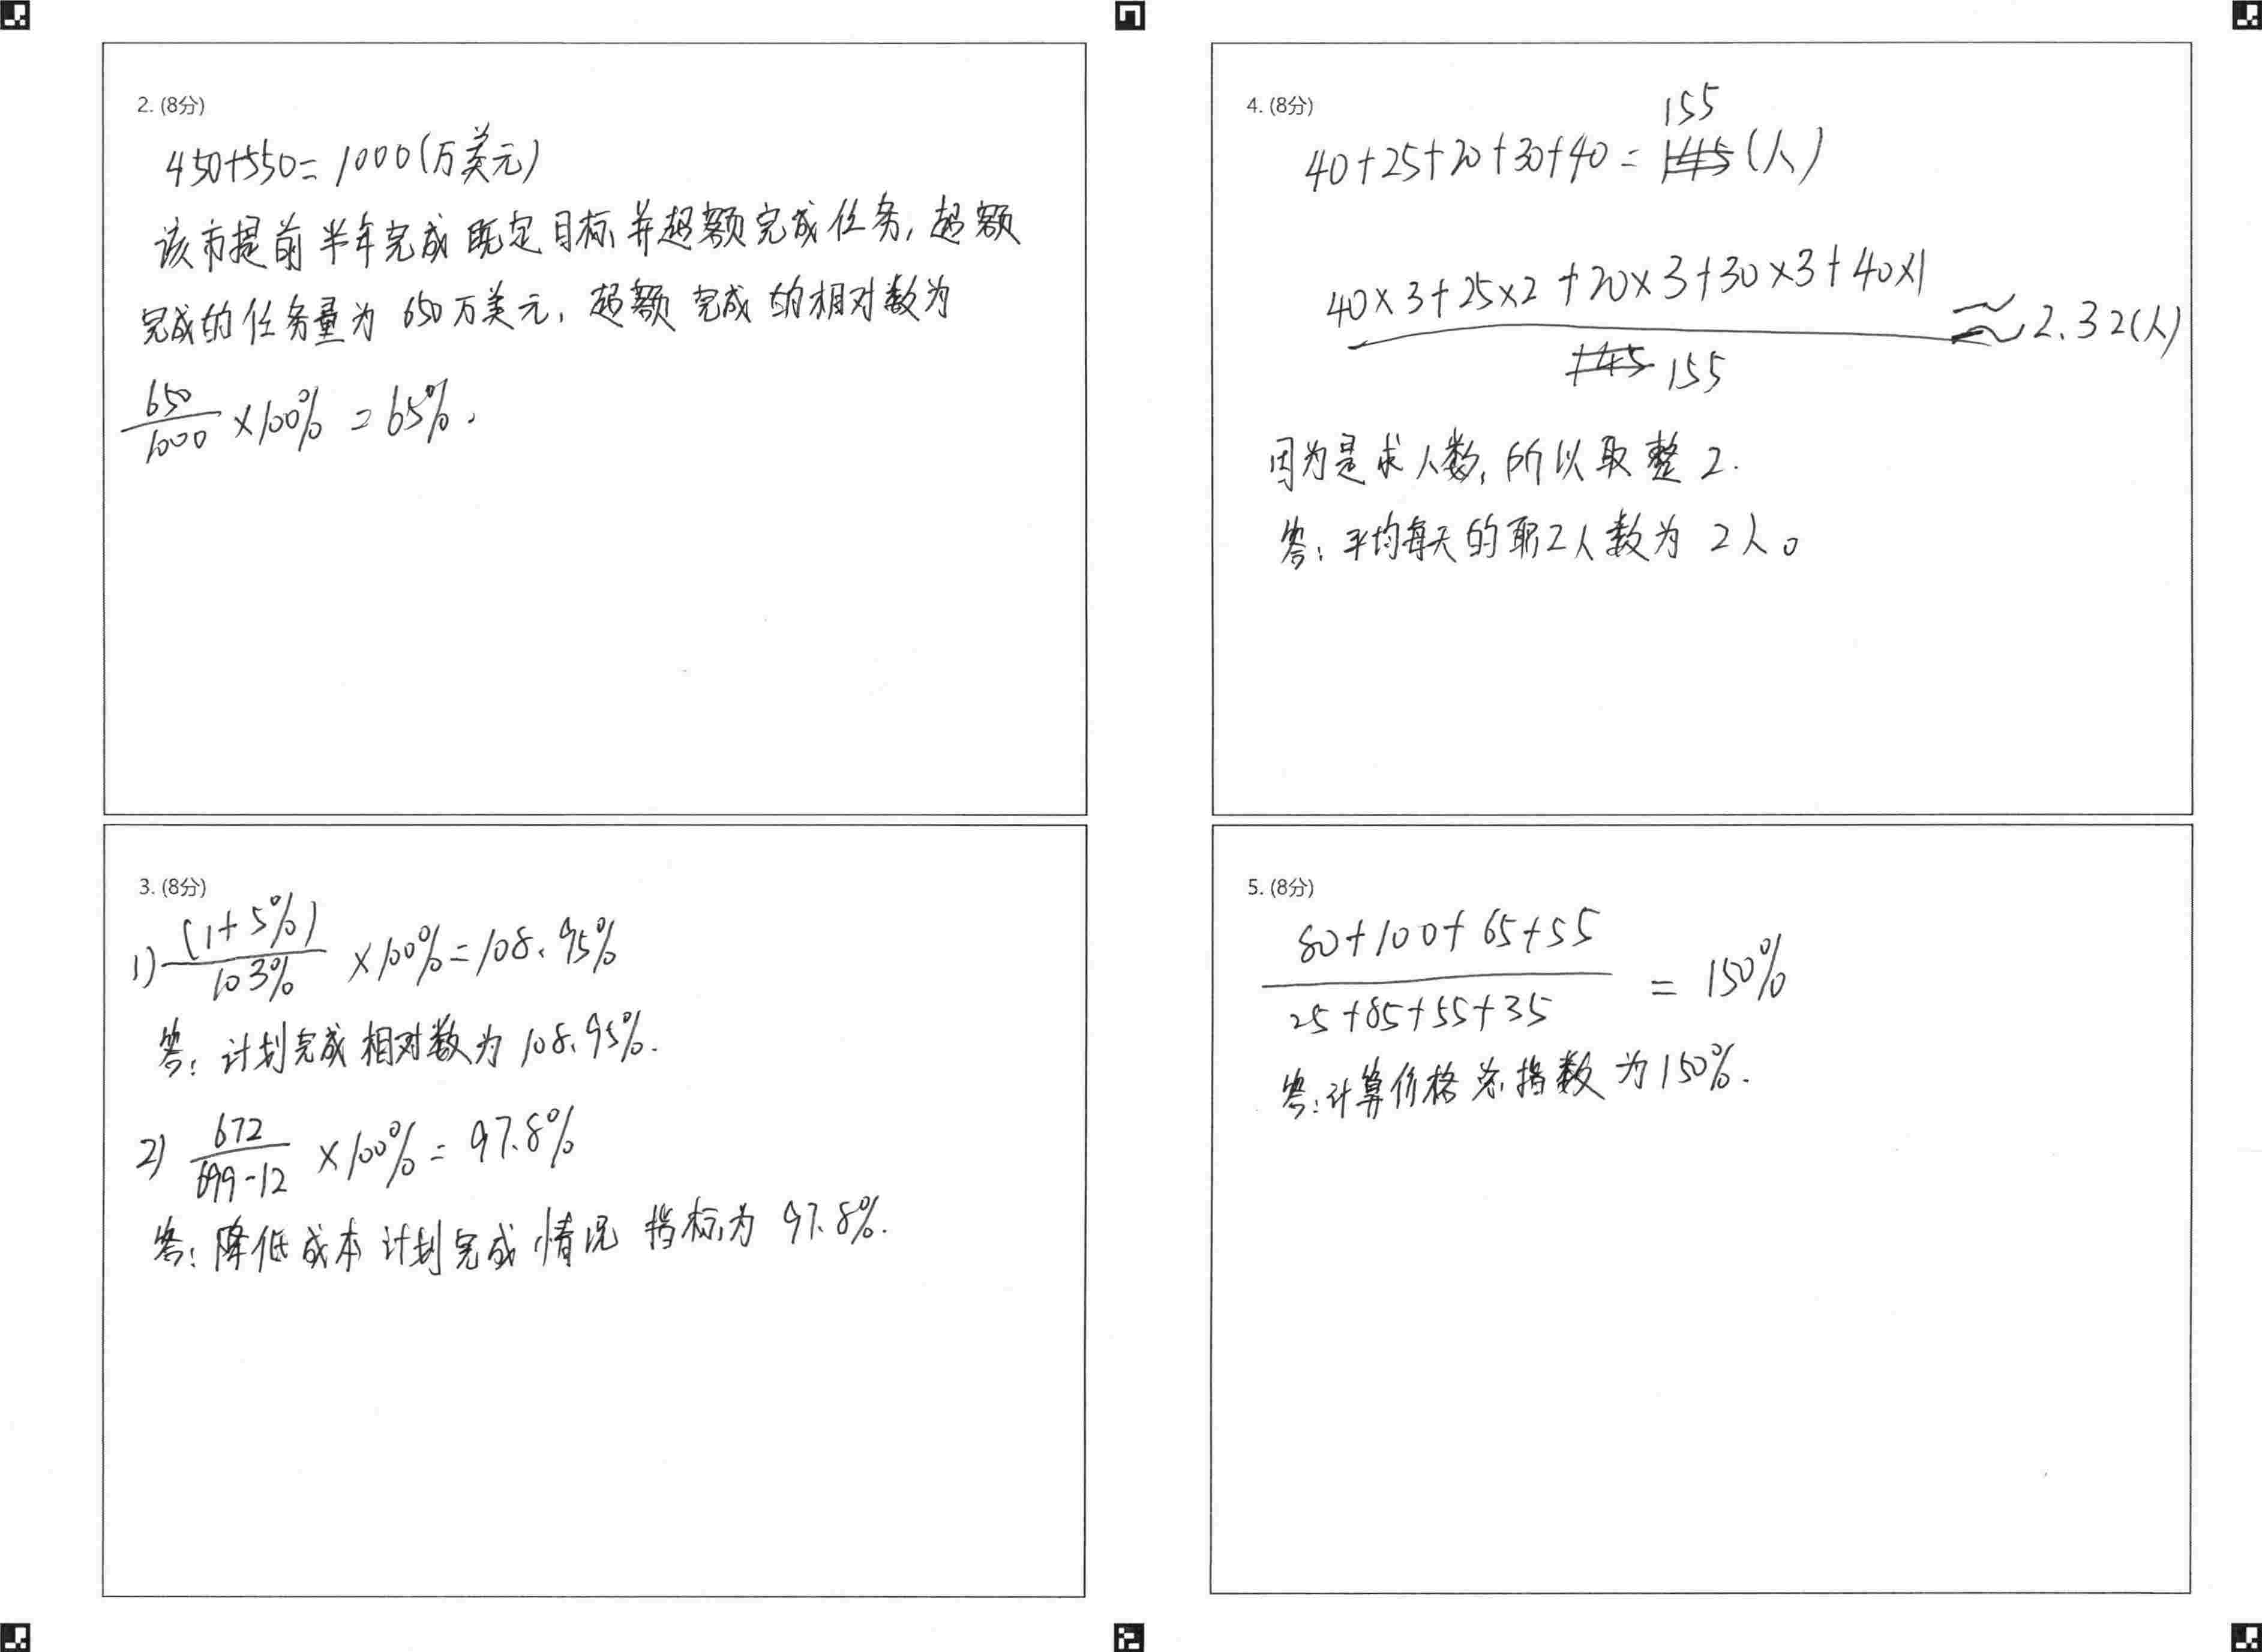 2. (8分)
450+550=1000(万美元)
该市提前半年完成既定目标并超额完成任务,超额
完成的任务量为650万美元,超额完成的相对数为
650/1000 ×100% =65%.
3. (8分)
1) (1+5%)/103% ×100%=108.95%
答:计划完成相对数为108.95%.
2) 672/699-12 ×100%=97.8%
答:降低成本计划完成情况指标为97.8%.
4. (8分)
155
40+25+20+30+40=145(人)
40×3+25×2+20×3+30×3+40×1
≈2.32(人)
145 155
因为是求人数,所以取整2.
答:平均每天的职工人数为2人。
5. (8分)
80+100+65+55
25+85+55+35
= 150%
答:计算价格总指数为150%.